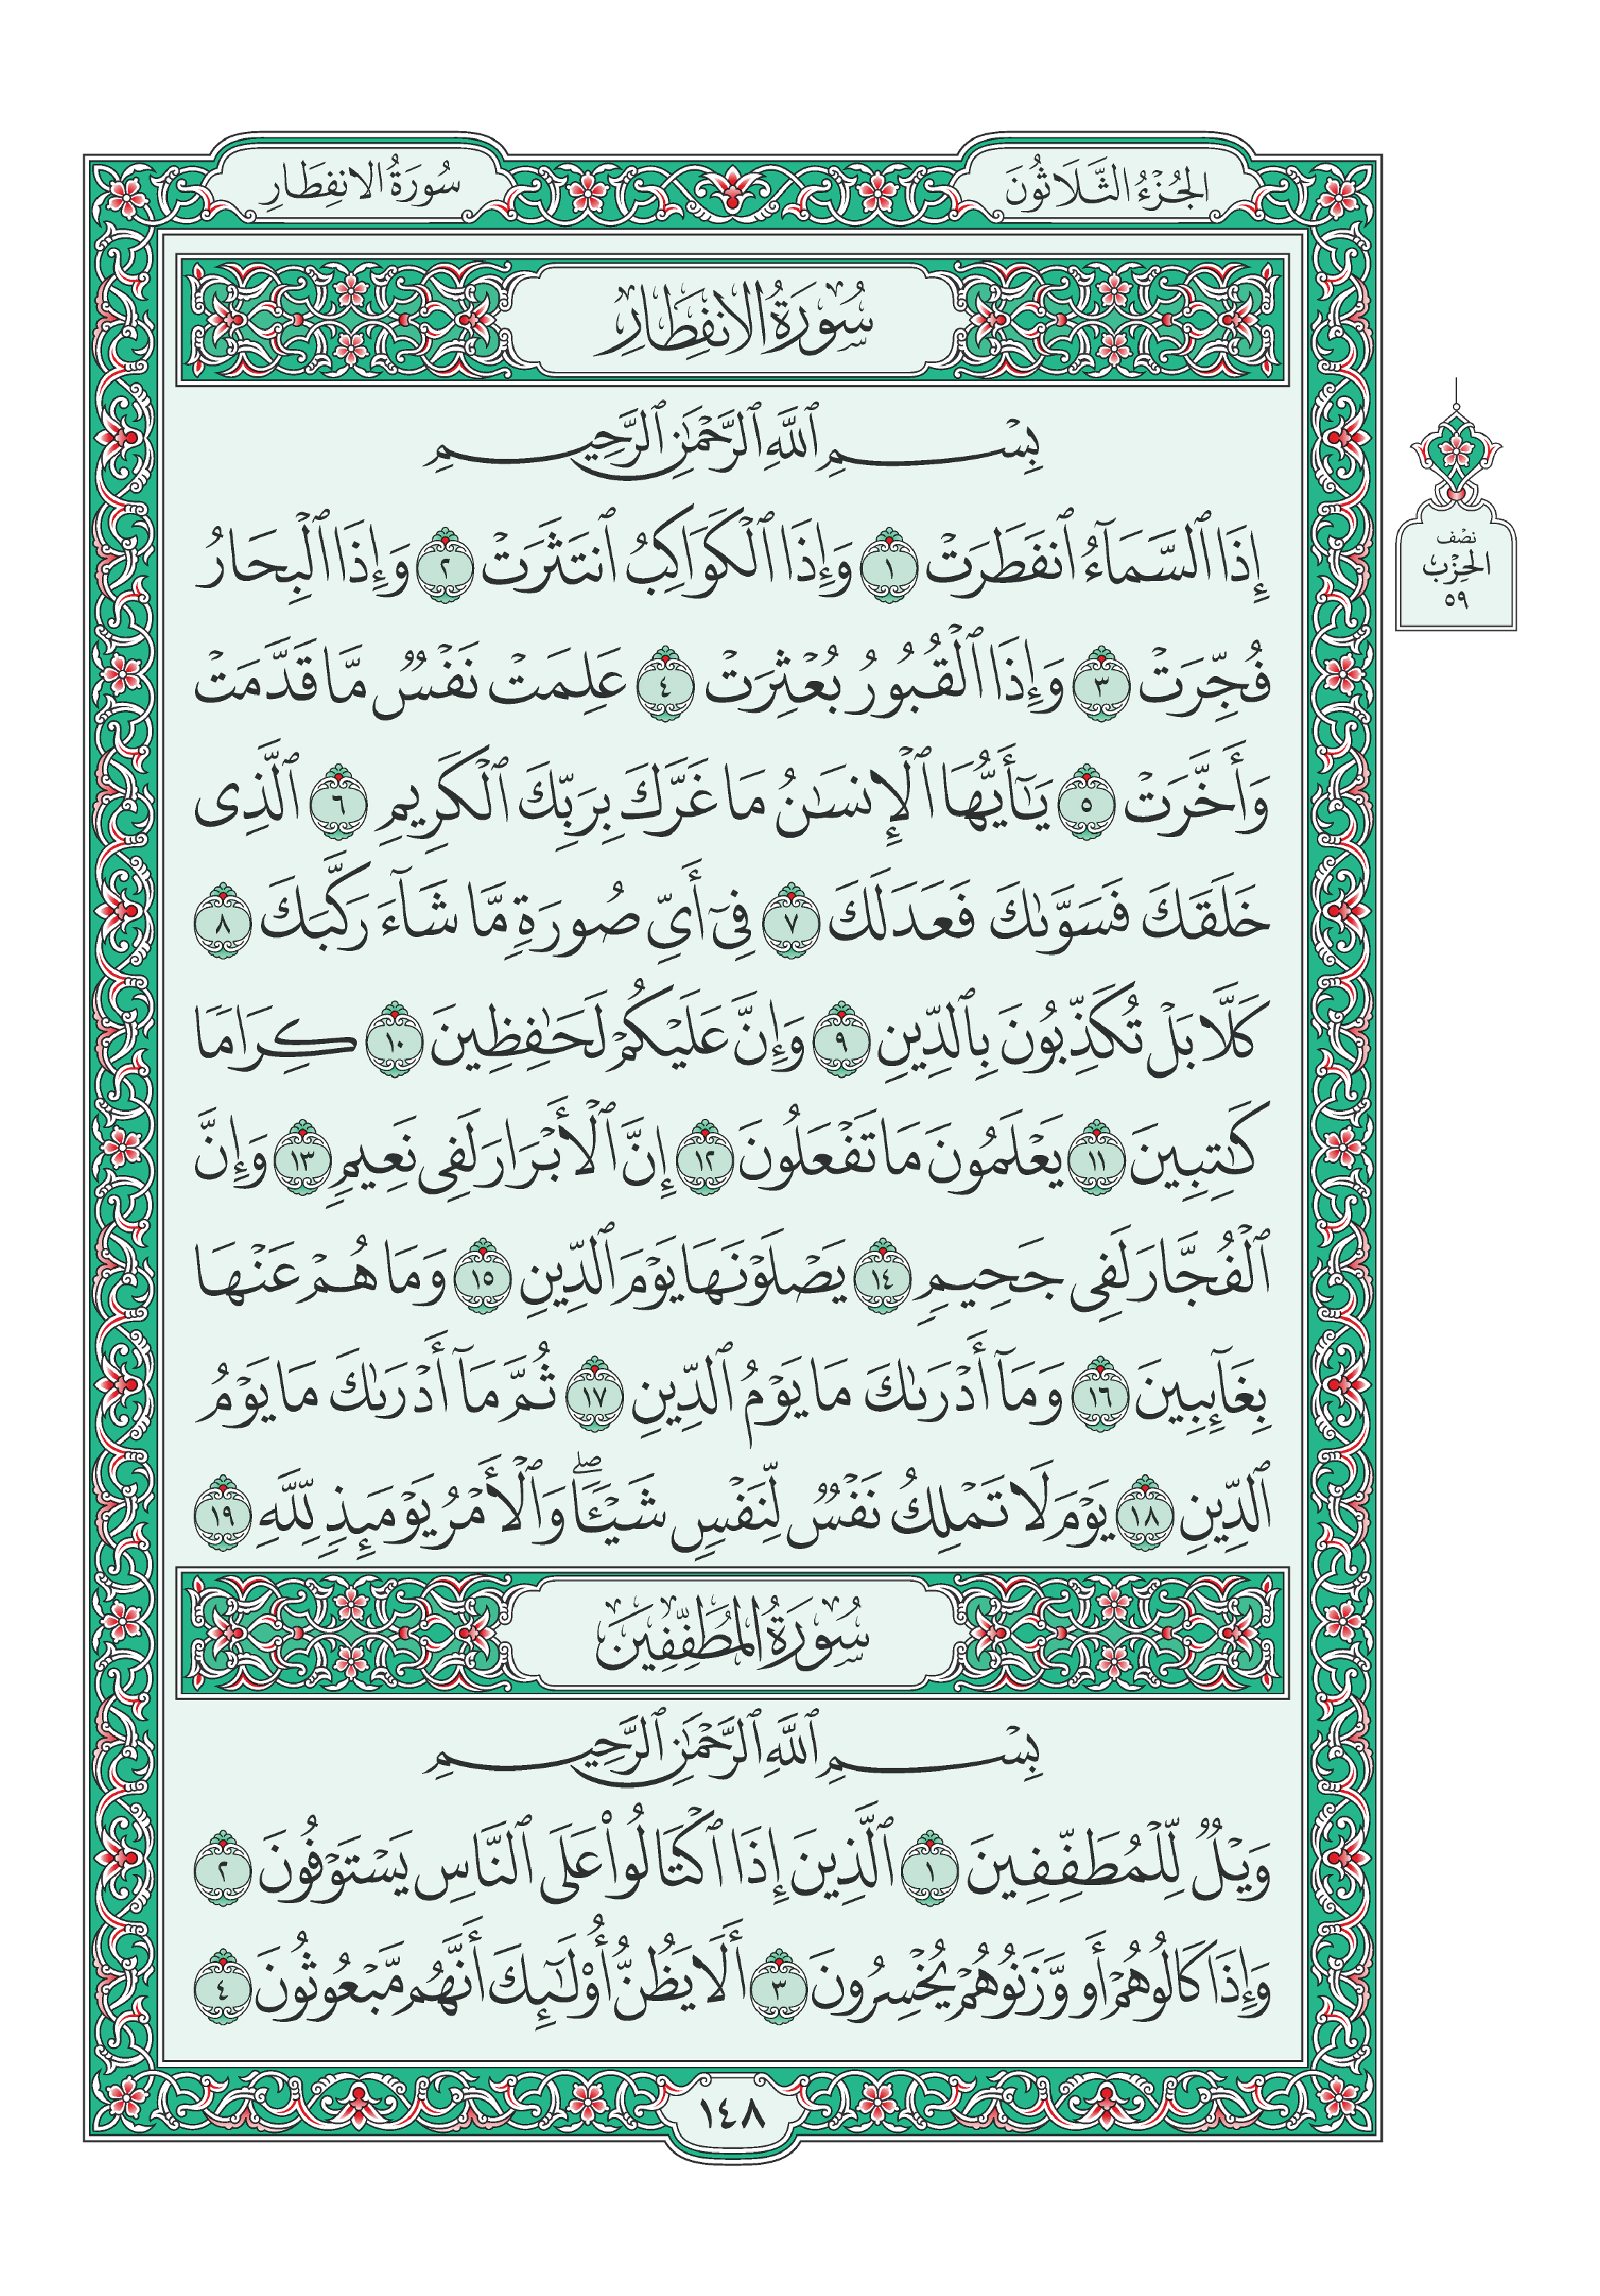 الجُزْءُ الثَّلَاثُونَ
سُورَةُ الانفِطَارِ
سُورَةُ الانفِطَارِ
بِسْمِ ٱللَّهِ ٱلرَّحْمَٰنِ ٱلرَّحِيمِ
إِذَا ٱلسَّمَآءُ ٱنفَطَرَتْ ١ وَإِذَا ٱلْكَوَاكِبُ ٱنتَثَرَتْ ٢ وَإِذَا ٱلْبِحَارُ
نصف
الحزب
٥٩
فُجِّرَتْ ٣ وَإِذَا ٱلْقُبُورُ بُعْثِرَتْ ٤ عَلِمَتْ نَفْسٌ مَّا قَدَّمَتْ
وَأَخَّرَتْ ٥ يَٰٓأَيُّهَا ٱلْإِنسَٰنُ مَا غَرَّكَ بِرَبِّكَ ٱلْكَرِيمِ ٦ ٱلَّذِى
خَلَقَكَ فَسَوَّىٰكَ فَعَدَلَكَ ٧ فِىٓ أَىِّ صُورَةٍ مَّا شَآءَ رَكَّبَكَ ٨
كَلَّا بَلْ تُكَذِّبُونَ بِٱلدِّينِ ٩ وَإِنَّ عَلَيْكُمْ لَحَٰفِظِينَ ١٠ كِرَامًا
كَٰتِبِينَ ١١ يَعْلَمُونَ مَا تَفْعَلُونَ ١٢ إِنَّ ٱلْأَبْرَارَ لَفِى نَعِيمٍ ١٣ وَإِنَّ
ٱلْفُجَّارَ لَفِى جَحِيمٍ ١٤ يَصْلَوْنَهَا يَوْمَ ٱلدِّينِ ١٥ وَمَا هُمْ عَنْهَا
بِغَآئِبِينَ ١٦ وَمَآ أَدْرَىٰكَ مَا يَوْمُ ٱلدِّينِ ١٧ ثُمَّ مَآ أَدْرَىٰكَ مَا يَوْمُ
ٱلدِّينِ ١٨ يَوْمَ لَا تَمْلِكُ نَفْسٌ لِّنَفْسٍ شَيْـًٔا ۖ وَٱلْأَمْرُ يَوْمَئِذٍ لِّلَّهِ ١٩
سُورَةُ المُطَفِّفِينَ
بِسْمِ ٱللَّهِ ٱلرَّحْمَٰنِ ٱلرَّحِيمِ
وَيْلٌ لِّلْمُطَفِّفِينَ ١ ٱلَّذِينَ إِذَا ٱكْتَالُوا۟ عَلَى ٱلنَّاسِ يَسْتَوْفُونَ ٢
وَإِذَا كَالُوهُمْ أَو وَّزَنُوهُمْ يُخْسِرُونَ ٣ أَلَا يَظُنُّ أُو۟لَٰٓئِكَ أَنَّهُم مَّبْعُوثُونَ ٤
١٤٨